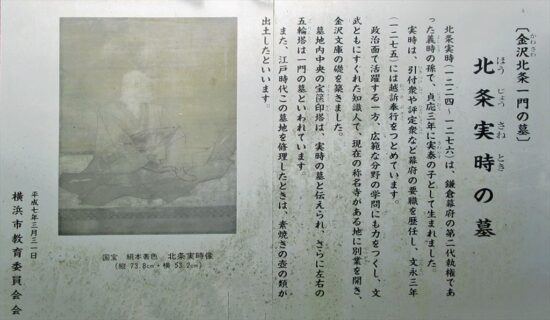 〔金沢北条一門の墓〕
かねさわ
北条実時の墓
ほう じょう さね とき
北条実時(一二二四〜一二七六)は、鎌倉幕府の第二代執権であ
った義時の孫で、貞応三年に実泰の子として生まれました。
実時は、引付衆や評定衆など幕府の要職を歴任し、文永三年
(一二七五)には越訴奉行をつとめています。
政治面で活躍する一方、広範な分野の学問にも力をつくし、文
武ともにすぐれた知識人で、現在の称名寺がある地に別業を開き、
金沢文庫の礎を築きました。
墓地内中央の宝篋印塔は、実時の墓と伝えられ、さらに左右の
五輪塔は一門の墓といわれています。
また、江戸時代この墓地を修理したときは、素焼きの壺の類が
出土したといいます。
国宝 絹本著色 北条実時像
(縦 73.8cm・横 53.2cm)
平成七年三月三一日
横浜市教育委員会